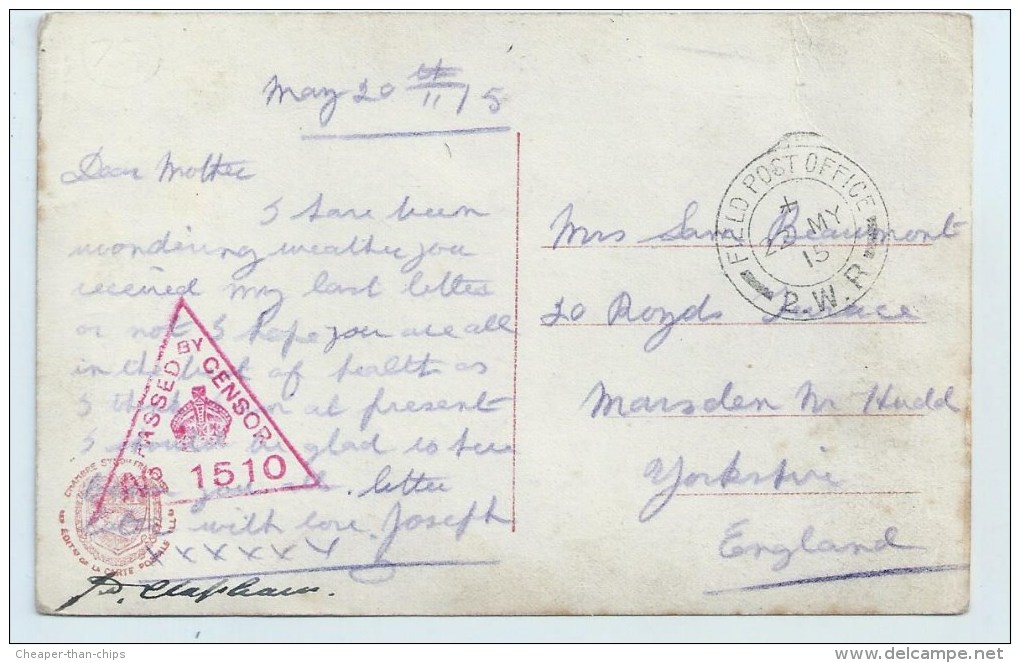 May 20th/11/5
Dear Mother
I have been
wondering weather you
received my last letter
or not I hope you are all
in the best of health as
I at present
I should be glad to
you letter
with love. Joseph
xxxxxx
PASSED BY CENSOR
No 1510
CHAMBRE SYND
DE LA CARTE POSTALE
FIELD POST OFFICE
22 MY
15
2.W.R
Mrs Sam Beaumont
20 Royds Terrace
Marsden Nr Hudd
Yorkshire
England
Cheaper-than-chips
www.delcampe.net